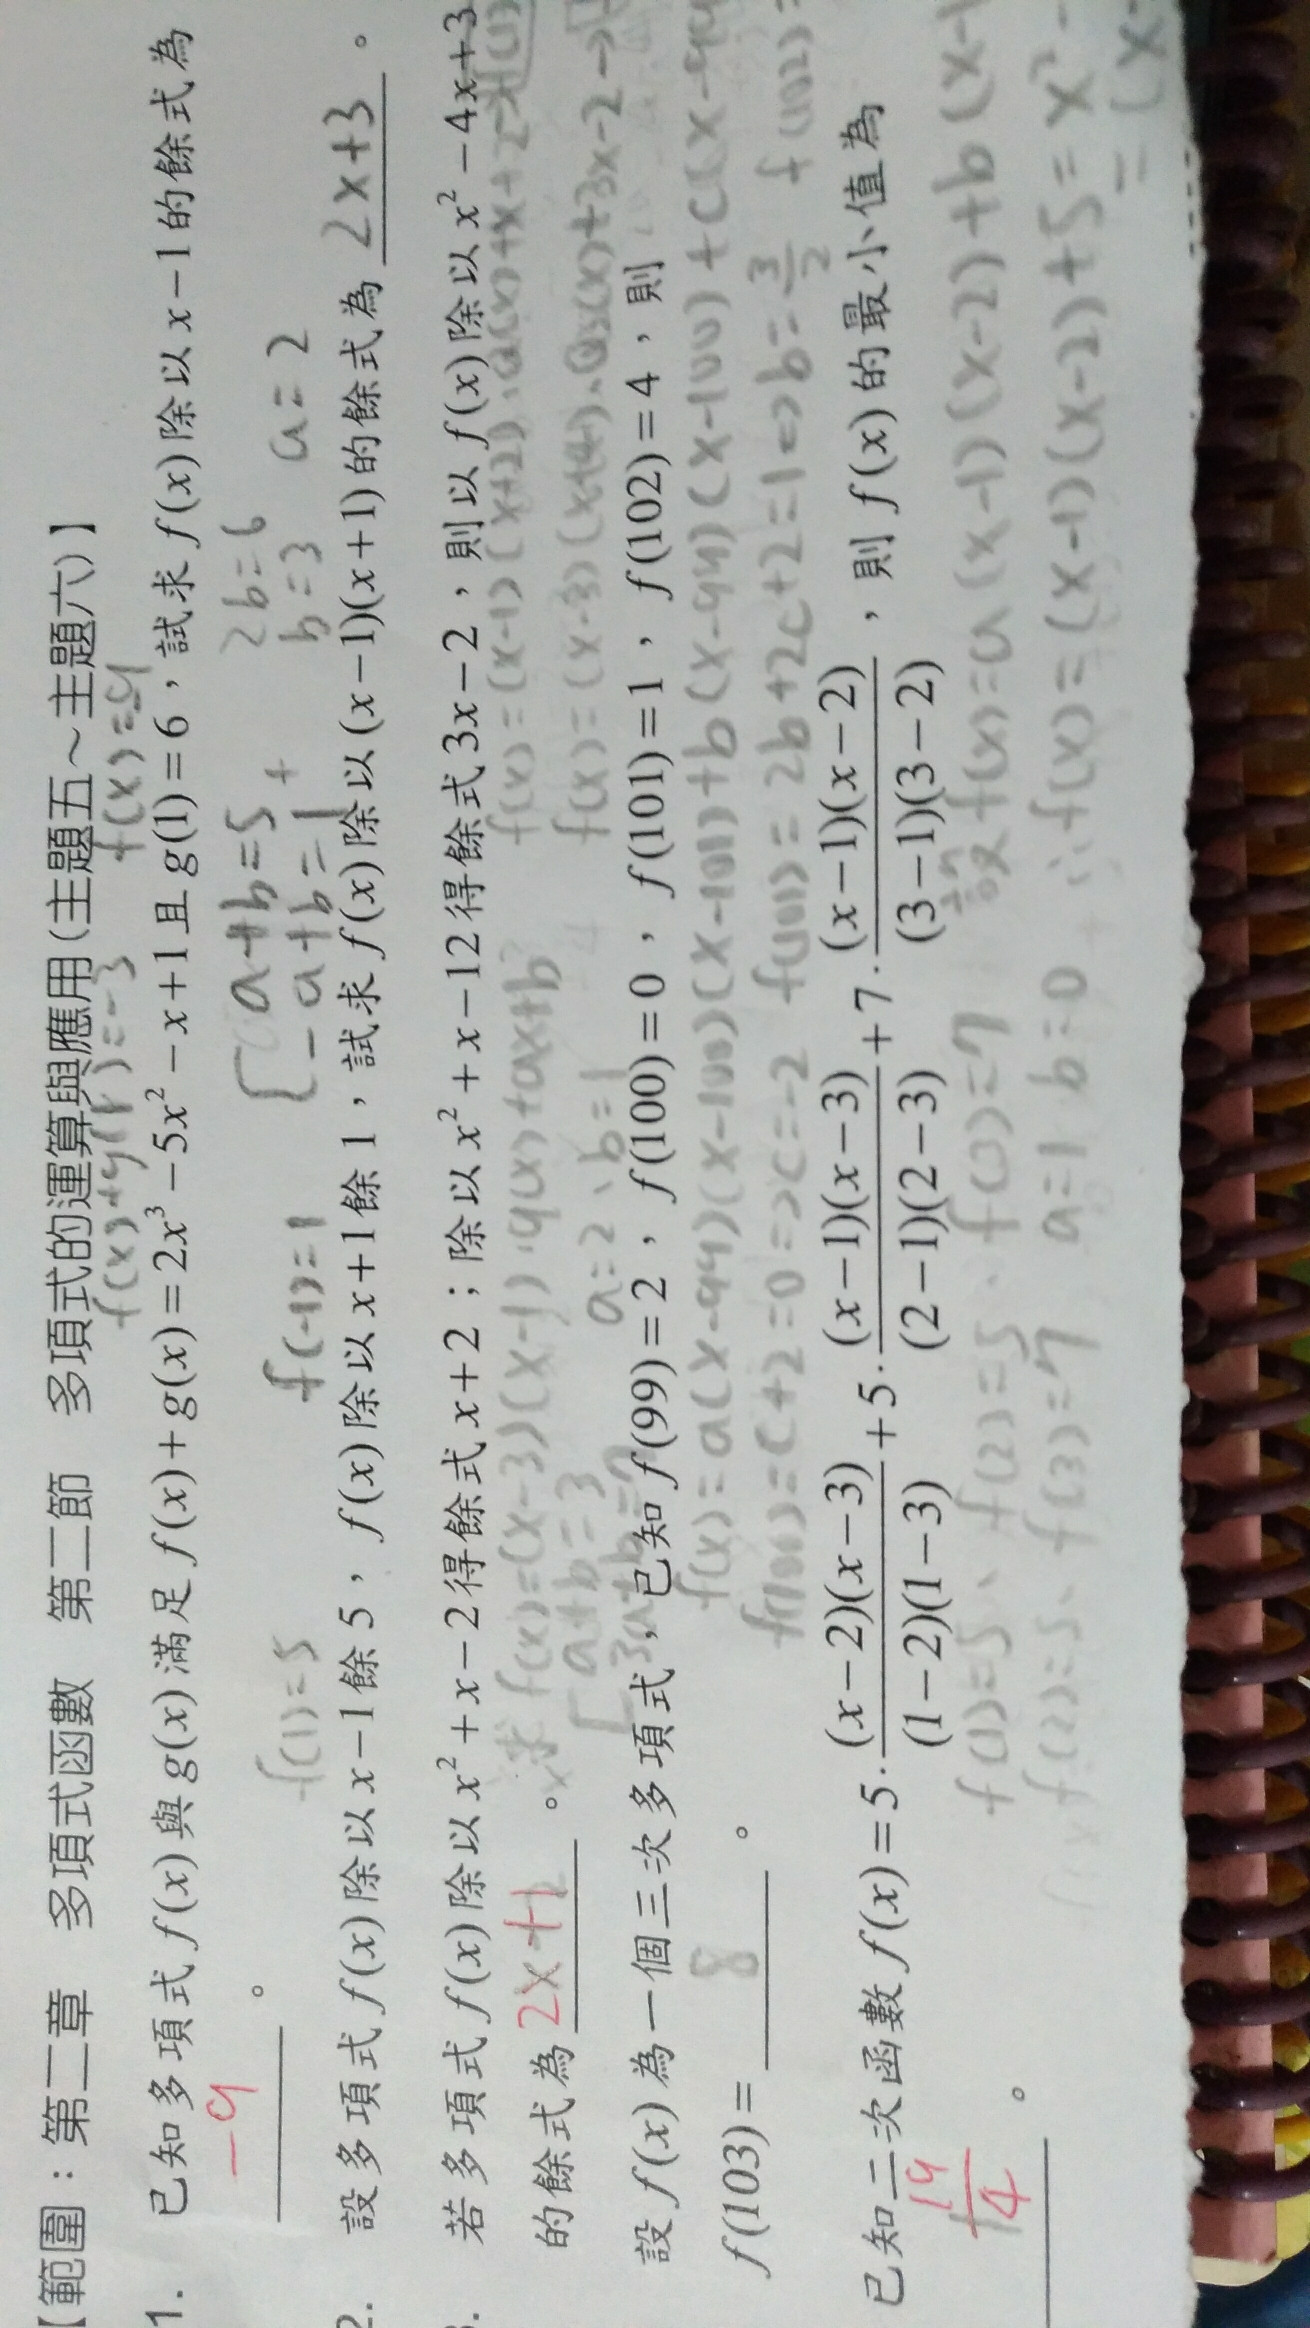 【範圍：第二章 多項式函數 第二節 多項式的運算與應用（主題五～主題六）】
f(x)+g(x)=-3 f(x)=-9
1. 已知多項式 f(x) 與 g(x) 滿足 f(x)+g(x)=2x³-5x²-x+1 且 g(1)=6，試求 f(x) 除以 x-1 的餘式為
-9 。
a+b=5 2b=6
-a+b=1 b=3 a=2
f(1)=5 f(-1)=1
2. 設多項式 f(x) 除以 x-1 餘 5，f(x) 除以 x+1 餘 1，試求 f(x) 除以 (x-1)(x+1) 的餘式為 2x+3 。
3. 若多項式 f(x) 除以 x²+x-2 得餘式 x+2；除以 x²+x-12 得餘式 3x-2，則以 f(x) 除以 x²-4x+3
的餘式為 2x+1 。 求 f(x)=(x-3)(x-1)·q(x)+ax+b f(x)=(x-1)(x+2)·Q(x)+x+2
a+b=3 a=2、b=1 f(x)=(x-3)(x+4)·Q(x)+3x-2
設 f(x) 為一個三次多項式，已知 f(99)=2，f(100)=0，f(101)=1，f(102)=4，則
f(103)= 8 。
f(x)=a(x-99)(x-100)(x-101)+b(x-99)(x-100)+c(x-99
f(100)=c+2=0=>c=-2 f(101)=2b+2c+2=1=>b=3/2 f(102)=
已知二次函數 f(x)=5·(x-2)(x-3)/(1-2)(1-3)+5·(x-1)(x-3)/(2-1)(2-3)+7·(x-1)(x-2)/(3-1)(3-2)，則 f(x) 的最小值為
19/4 。
f(1)=5、f(2)=5、f(3)=7 設 f(x)=a(x-1)(x-2)+b(x-1
f(2)=5、f(3)=7 a=1 b=0 ∴f(x)=(x-1)(x-2)+5=x²-
=(x-